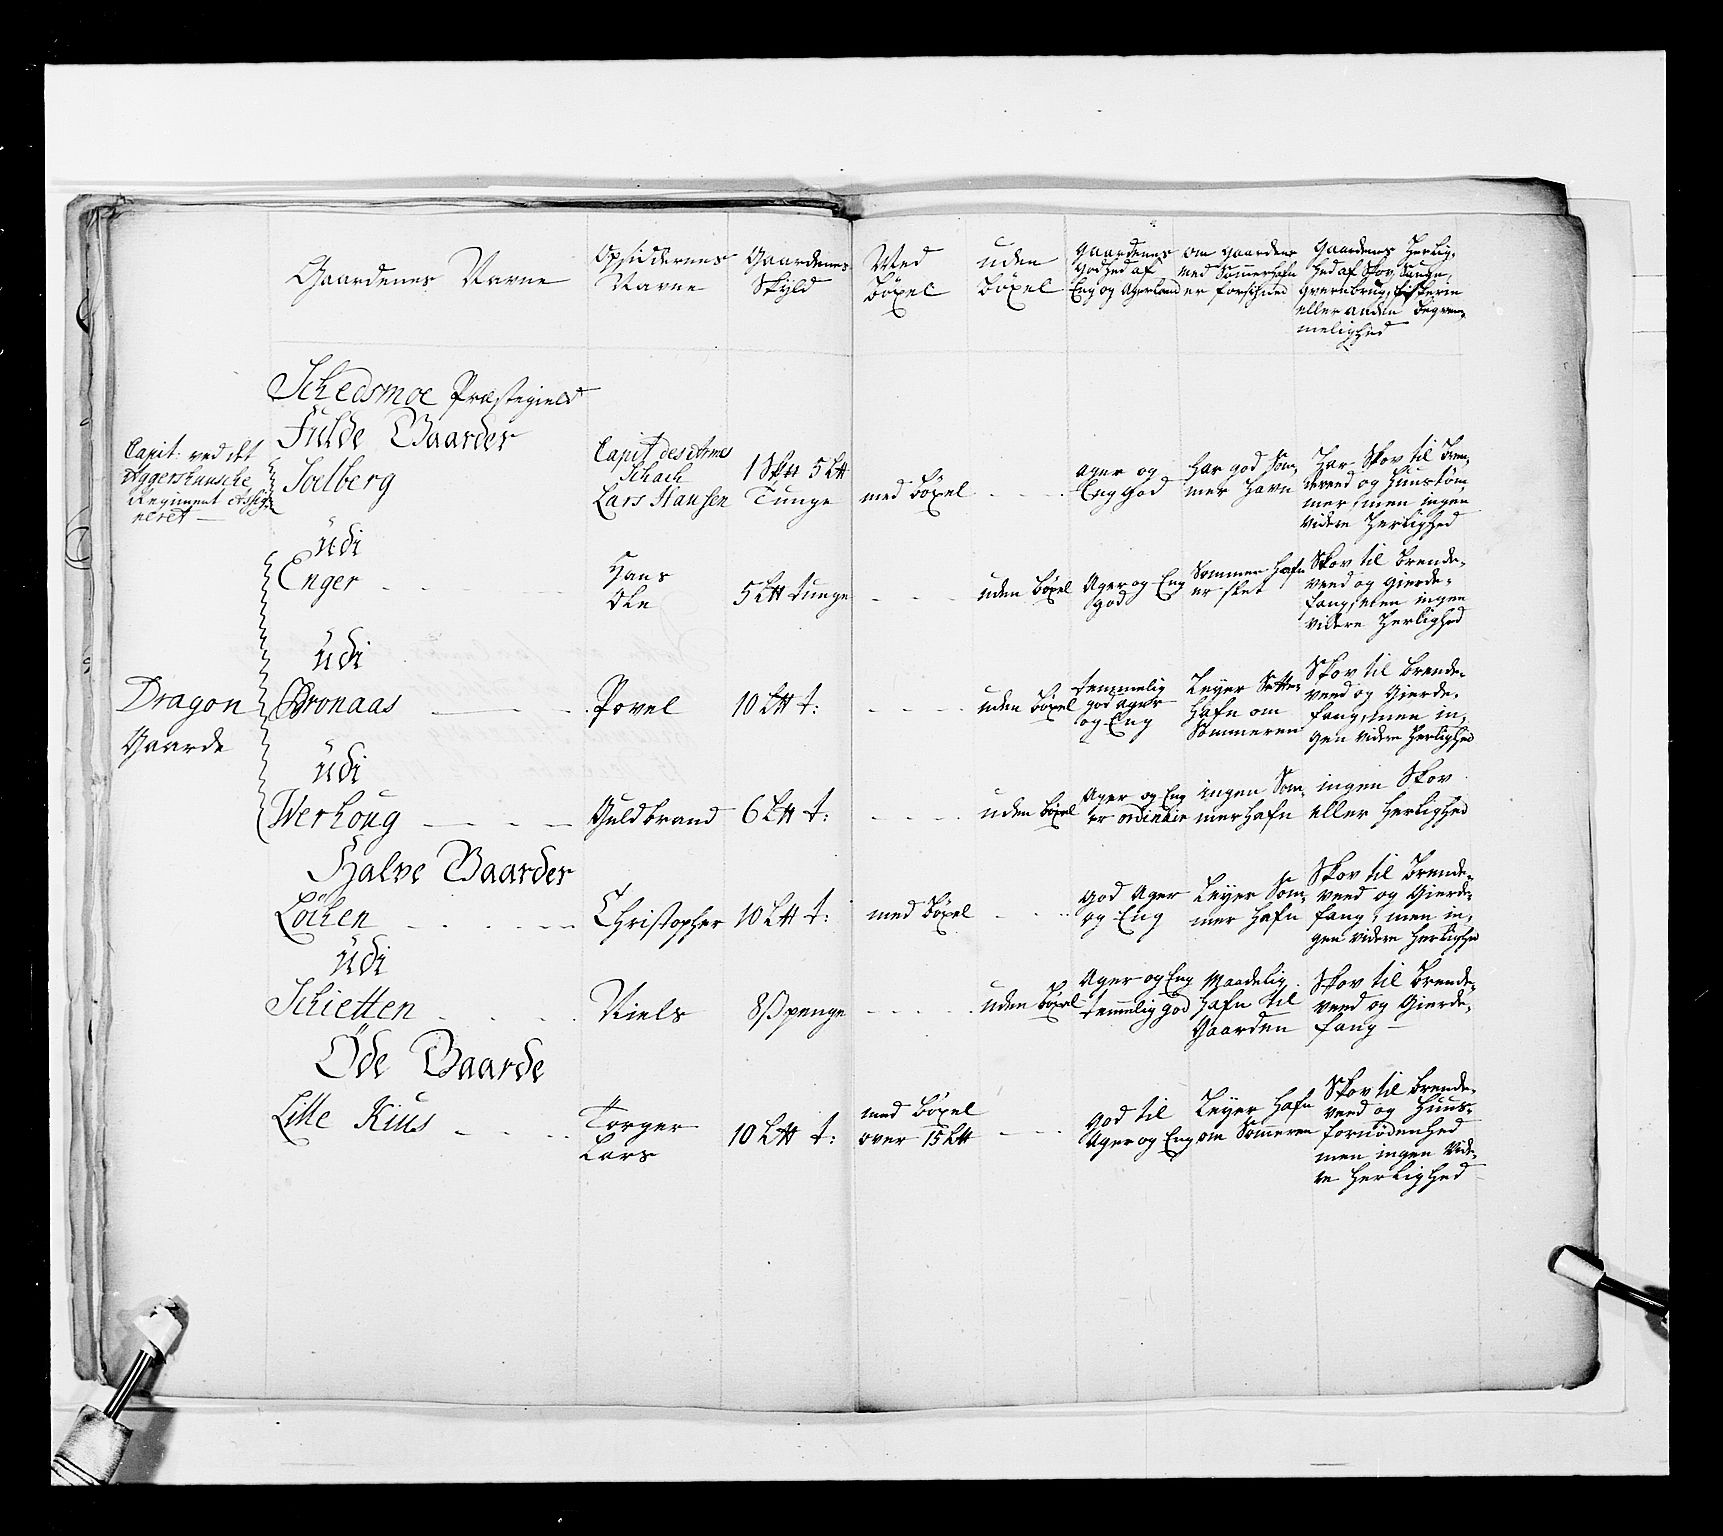 Gaardenes Navne
Opsiddernes
Navne
Gaardenes
Skyld
Med
böxel
uden
böxel
Gaardenes
Godhed af
Eng og Agerland
om Gaarden
med Sommerhafn
er forsiuned
Gaardens Herlig-
hed af Skov, Sauge,
Qvernbrug, Fiskerie
eller anden Beqvem-
melighed
Schedsmoe Præstegield
Fulde Gaarder
Capit: ved det
Aggershuusche
Regiment assig-
neret —
Soelberg
Capit des Armes
Schach
Lars Hansen
1 Skp 5 L℔
Tunge
med böxel
ager og
Eng god
Har god Som-
mer Havn
Har Skov til Bren-
deveed og Huustöm-
mer, men ingen
videre Herlighed
üdi
Enger
Hans
Ole
5 L℔ tunge
uden böxel
Ager og Eng
god
Sommer Hafn
er slet
Skov til Brende-
veed og Gierde-
fang, men ingen
videre Herlighed
üdi
Dragon
Gaarde
Bronaas
Povel
10 L℔ t:
uden böxel
temmelig
god ager
og Eng
Leyer Sætter
Hafn om
Sommeren
Skov til Brende-
veed og Gierde-
fang, men in-
gen videre Herlighed
üdi
Werhoug
Guldbrand
6 L℔ t:
uden böxel
Ager og Eng
er ordinair
ingen Som-
merhafn
ingen Skov
eller Herlighed
Halve Gaarder
Löchen
Christopher
10 L℔ t:
med böxel
god Ager
og Eng
Leyer Som-
mer Hafn
Skov til Brende-
veed og Gierde-
fang, men in-
gen videre Herlighed
üdi
Schietten
Niels
8 ß penge
uden böxel
Ager og Eng
temmlig god
Maadelig
Hafn til
Gaarden
Skov til Brende-
veed og Gierde-
fang —
Öde Gaarde
Lille Kius
Torger
Lars
10 L℔ t:
med böxel
over 15 L℔
god til
Ager og Eng
Leyer Hafn
om Sommeren
Skov til Brende-
veed og Huus-
fornödenhed
men ingen vide-
re Herlighed